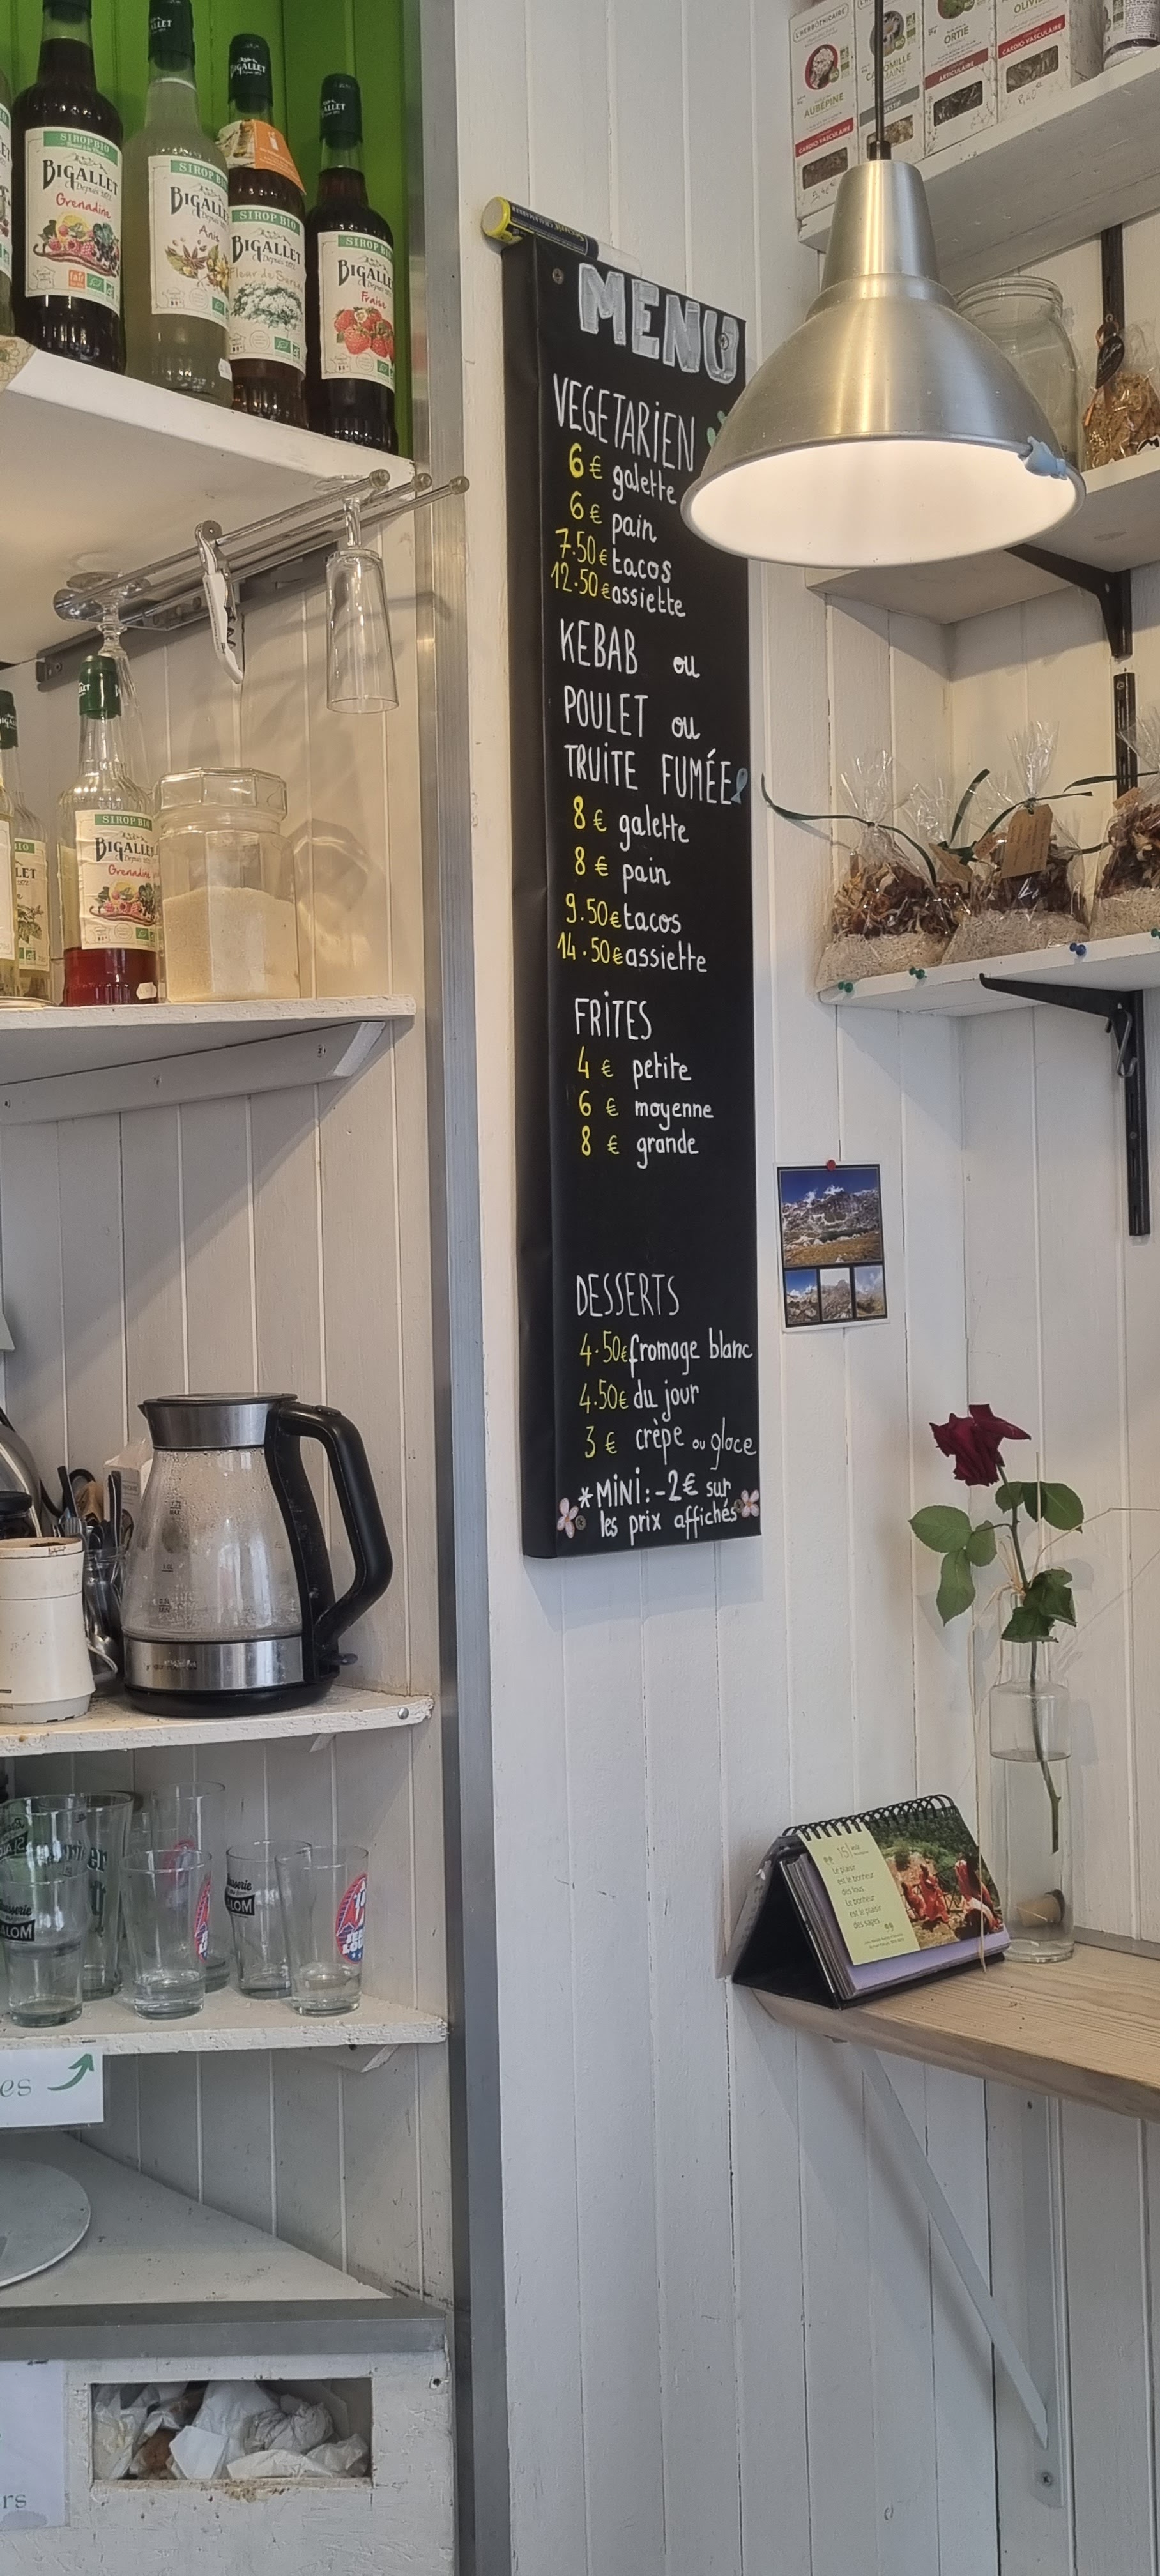 SIROP BIO
BIGALLET
Depuis 1872
Grenadine
SIROP B
BIGALL
Depuis
Anis
BIGALLET
SIROP BIO
BIGALLET
Depuis 1872
Fleur de Sureau
SIROP BI
BIGALLET
Fraise
L'HERBÔTHICAIRE
AUBÉPINE
CARDIO-VASCULAIRE
ORTIE
ARTICULAIRE
OLIVI
CARDIO-VASCULAIRE
MENU
VEGETARIEN
6 € galette
6 € pain
7.50€ tacos
12.50€ assiette
KEBAB ou
POULET ou
TRUITE FUMÉE
8 € galette
8 € pain
9.50€ tacos
14.50€ assiette
FRITES
4 € petite
6 € moyenne
8 € grande
DESSERTS
4.50€ fromage blanc
4.50€ du jour
3 € crèpe ou glace
*MINI: -2€ sur
les prix affichés
SIROP BIO
BIGALLE
Depuis 1872
Grenadine
LET
15
Le plaisir
est le bonheur
des fous.
Le bonheur
est le plaisir
des sages.
es
rs